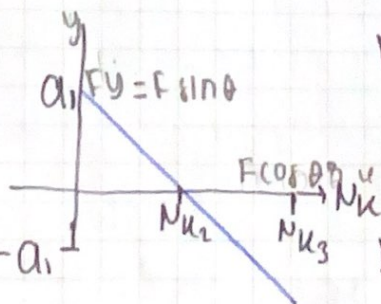 y
a₁ Fy = F sinθ
F cos θ
N_K
N_K₂
N_K₃
-a₁